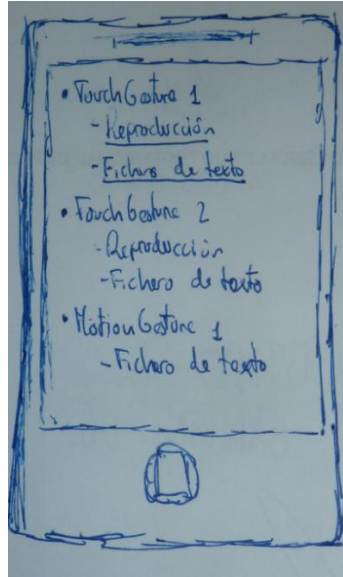 • TouchGesture 1
- Reproducción
- Fichero de texto
• TouchGesture 2
- Reproducción
- Fichero de texto
• MotionGesture 1
- Fichero de texto